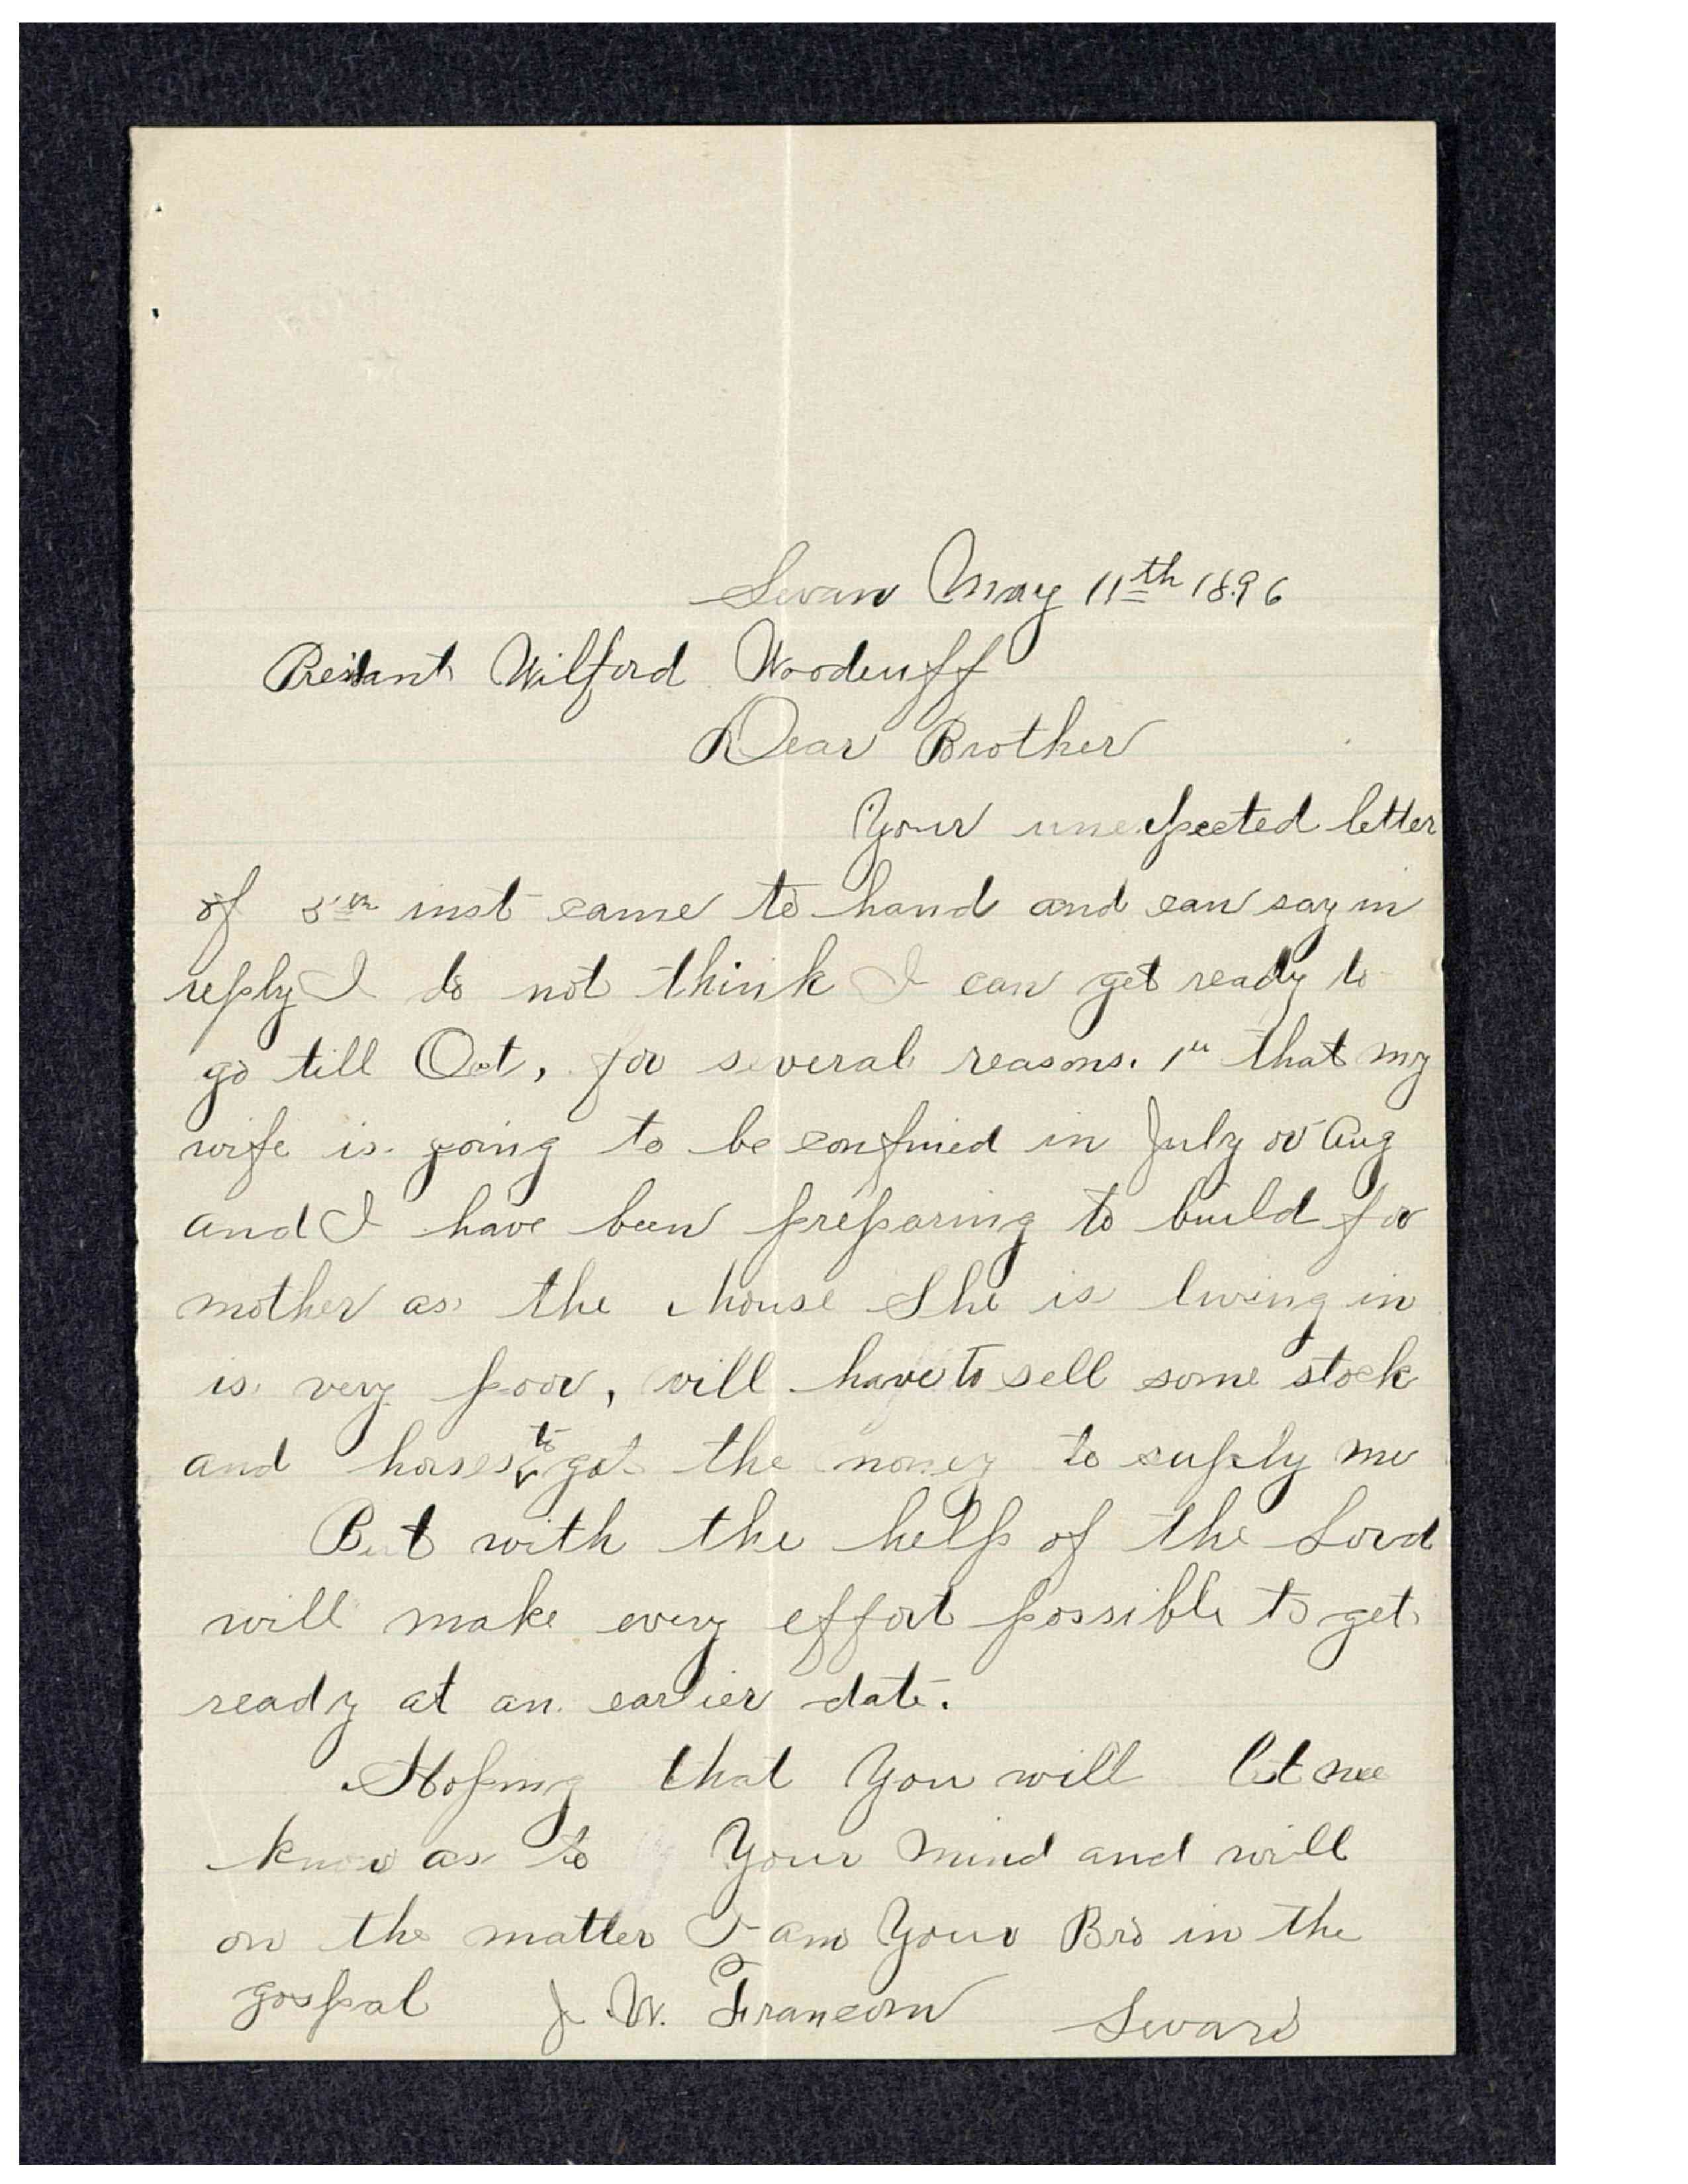 Swan May 11th 1896
Presidant Wilford Woodruff
Dear Brother
Your unexpected letter
of 5th inst came to hand and can say in
reply I do not think I can get ready to
go till Oct, for several reasons. 1st that my
wife is going to be confined in July or Aug
and I have been preparing to build for
mother as the house She is living in
is very poor, will have to sell some stock
and horses to get the money to supply me
But with the help of the Lord
will make every effort possible to get
ready at an earlier date.
Hoping that You will let me
know as to Your mind and will
on the matter I am Your Bro in the
gospal J. W. Francom Swan